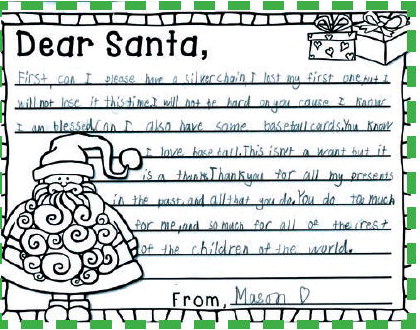 Dear Santa,
First, can I please have a silver chain, I lost my first one, but I
will not lose it this time. I will not be hard on you cause I know
I am blessed, can I also have some baseball cards. You know
I love baseball. This isn't a want but it
is a thanks. Thankyou for all my presents
in the past, and all that you do. You do to much
for me, and so much for all of the rest
of the children of the world.
From, Mason